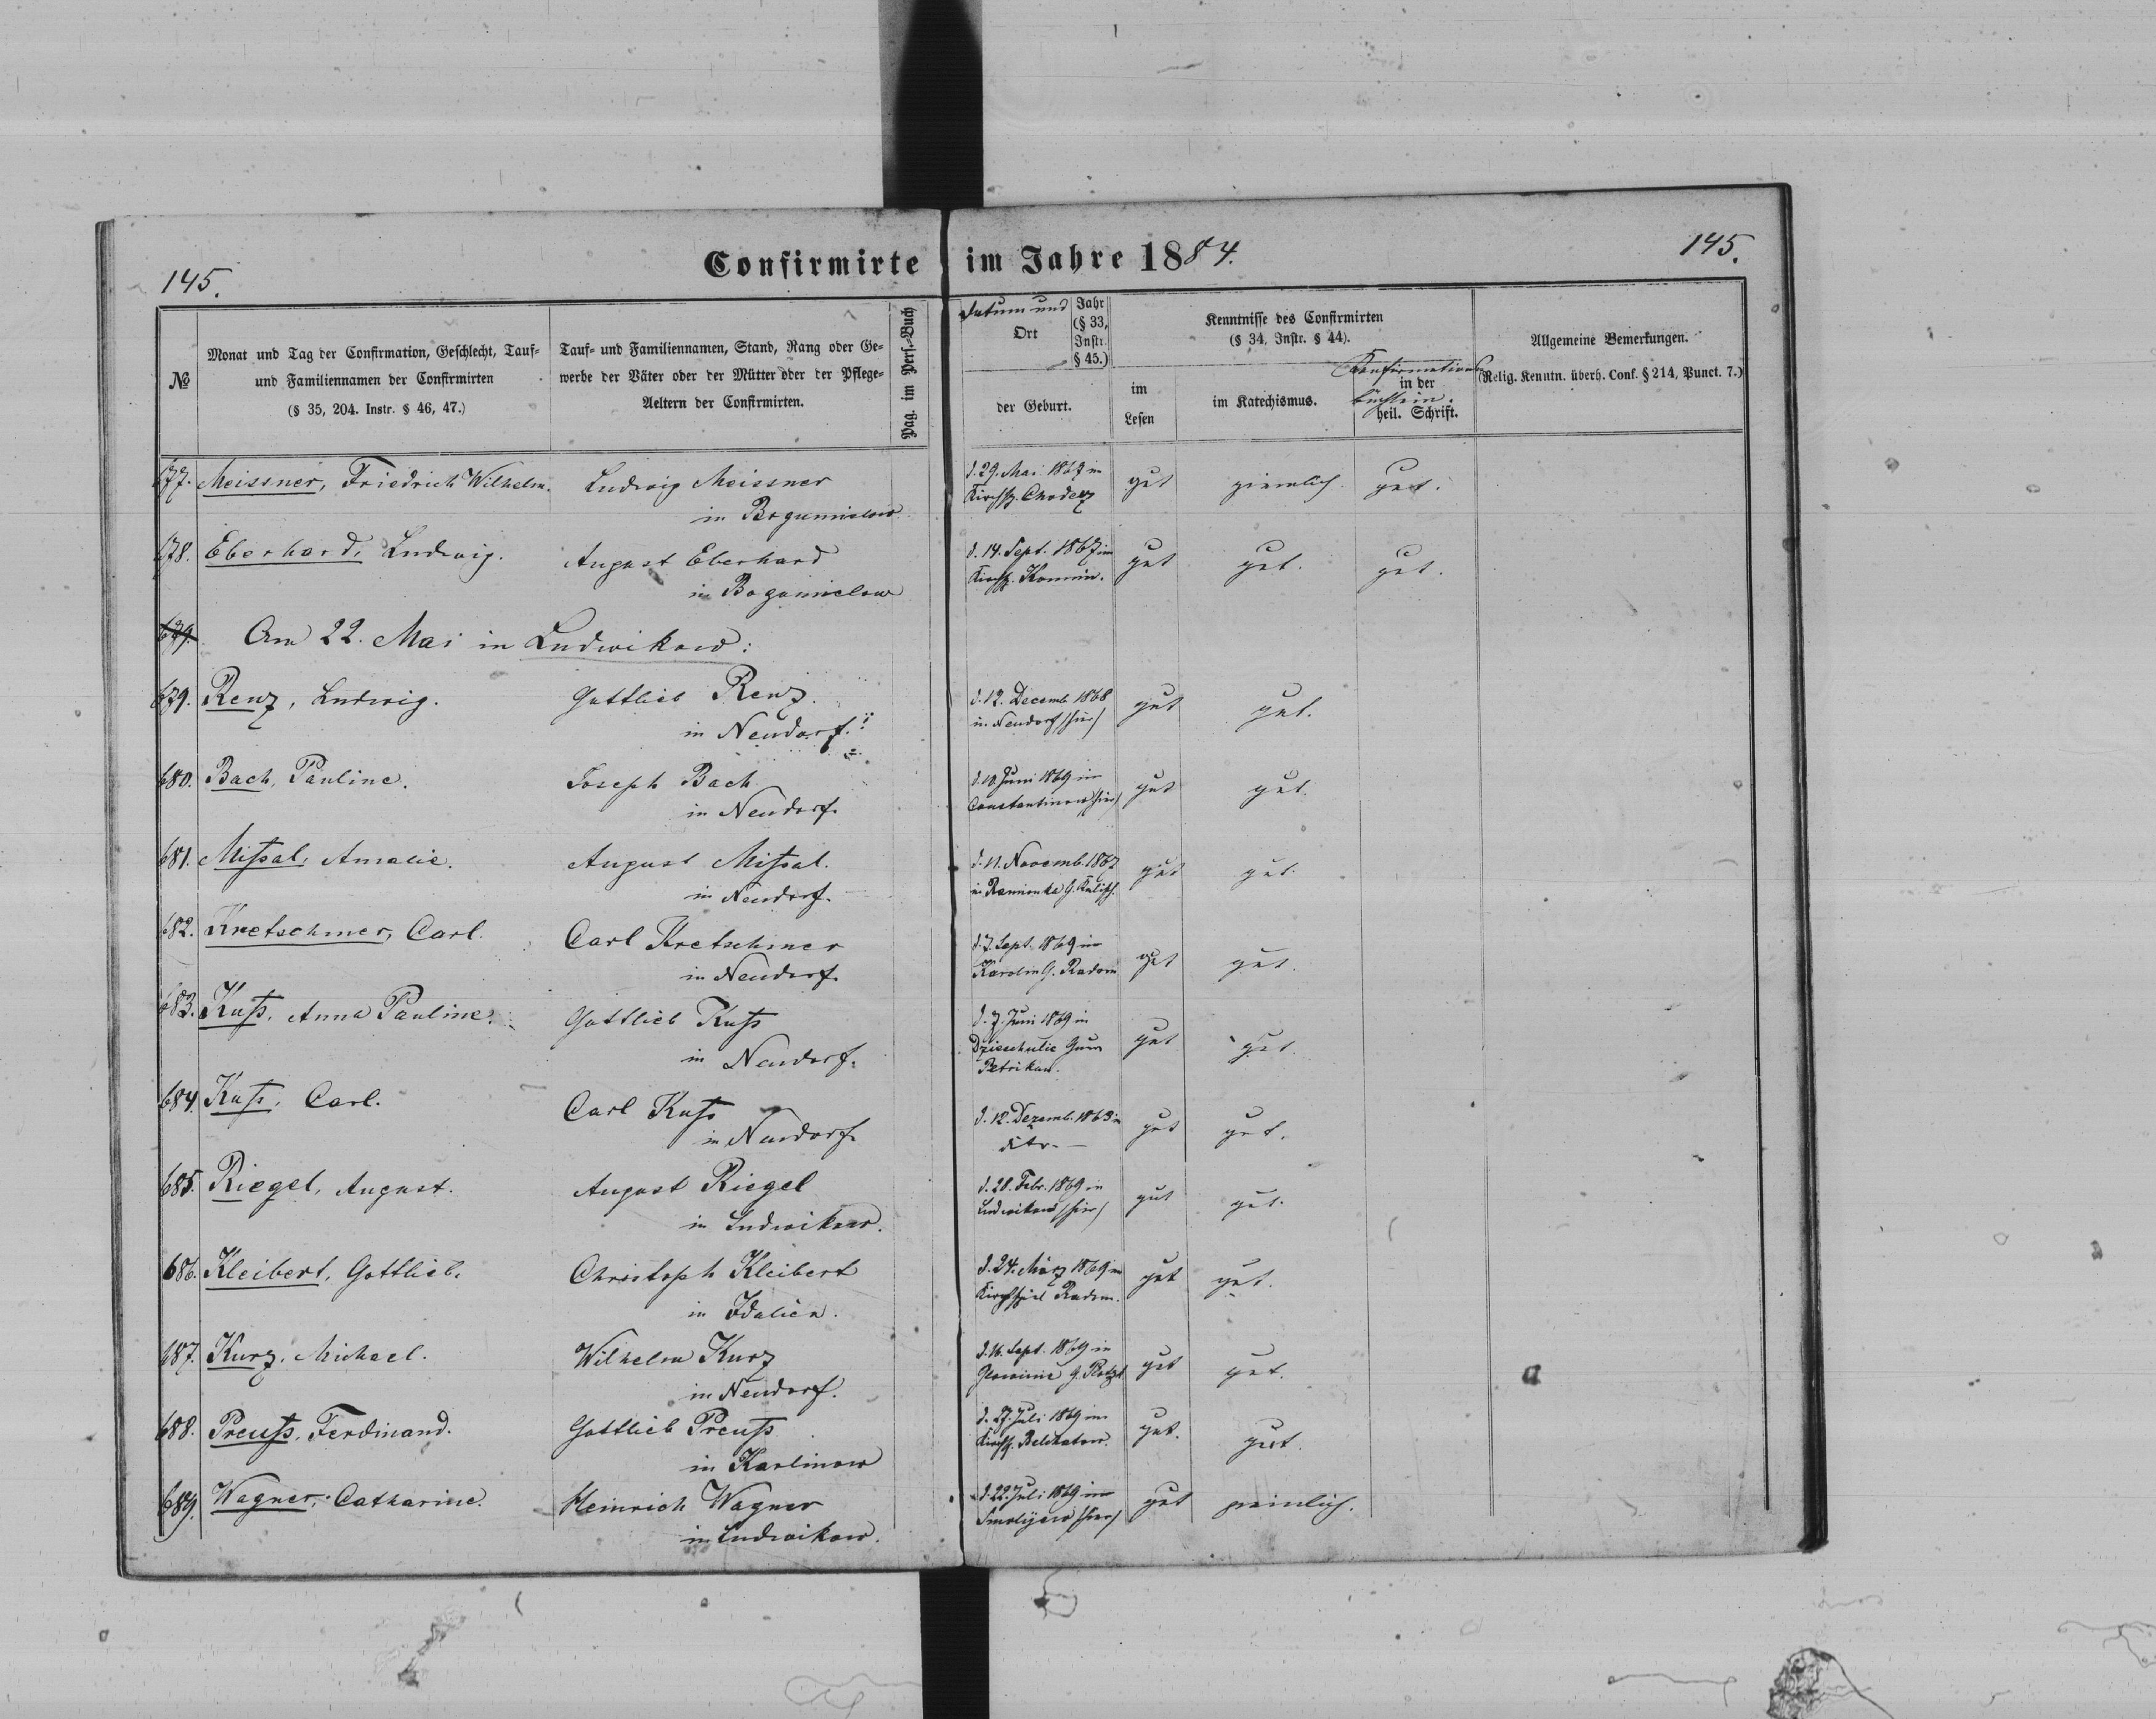 Confirmirte im Jahre 1884.
145.
145.
№
Monat und Tag der Confirmation, Geschlecht, Tauf-
und Familiennamen der Confirmirten
(§ 35, 204. Instr. § 46, 47.)
Tauf- und Familiennamen, Stand, Rang oder Ge-
werbe der Väter oder der Mütter oder der Pflege-
Aeltern der Confirmirten.
Pag. im Pers.-Buch
Datum und
Ort
Jahr
(§ 33,
Instr.
§ 45.)
der Geburt.
Kenntnisse des Confirmirten
(§ 34, Instr. § 44).
im
Lesen
im Katechismus.
Confirmations
in der
büchlein.
heil. Schrift.
Allgemeine Bemerkungen.
(Relig. Kenntn. überh. Conf. § 214, Punct. 7.)
677. Meissner, Friedrich Wilhelm. Ludwig Meissner d. 29. Mai 1869 im gut ziemlich gut.
in Bogumielow Kirchsp. Chodecz
678. Eberhard, Ludwig. August Eberhard d. 14. Sept. 1867 im gut gut. gut.
in Bogumielow Kirchsp. Konnin.
679. Am 22. Mai in Ludwikow:
679. Renz, Ludwig. Gottlieb Renz. d. 12. Decemb 1868 gut gut.
in Neudorf. in Neudorf (hier)
680. Bach, Pauline. Joseph Bach d. 10. Juni 1869 in gut gut.
in Neudorf. Constantinow (hier)
681. Mißal, Amalie. August Mißal. d. 11. Novemb. 1867 gut gut.
in Neudorf. in Kamionka G. Kalisch.
682. Kretschmer, Carl. Carl Kretschmer d. 7. Sept. 1869 in gut gut.
in Neudorf. Karolin G. Radom
683. Kuß, Anna Pauline. Gottlieb Kuß d. 7. Juni 1869 in gut gut.
in Neudorf. Gouv
Petrikau.
684. Kuß, Carl. Carl Kuß d. 12. Dezemb. 1869 in gut gut.
in Neudorf. dito. —
685. Riegel, August. August Riegel d. 20. Febr. 1869 in gut gut.
in Ludwikow. Ludwikow (hier)
686. Kleibert, Gottlieb. Christoph Kleibert d. 24. März 1869 im gut gut.
in Idalien. Kirchspiel Radom.
687. Kurz, Michael. Wilhelm Kurz d. 16. Sept. 1869 in gut gut.
in Neudorf. G.
688. Preuß, Ferdinand. Gottlieb Preuß d. 27. Juli 1869 im gut. gut.
in Karlinow Kirchsp. Belchatow.
689. Wagner, Catharine. Heinrich Wagner d. 22. Juli 1869 in gut ziemlich.
in Ludwikow. (hier)